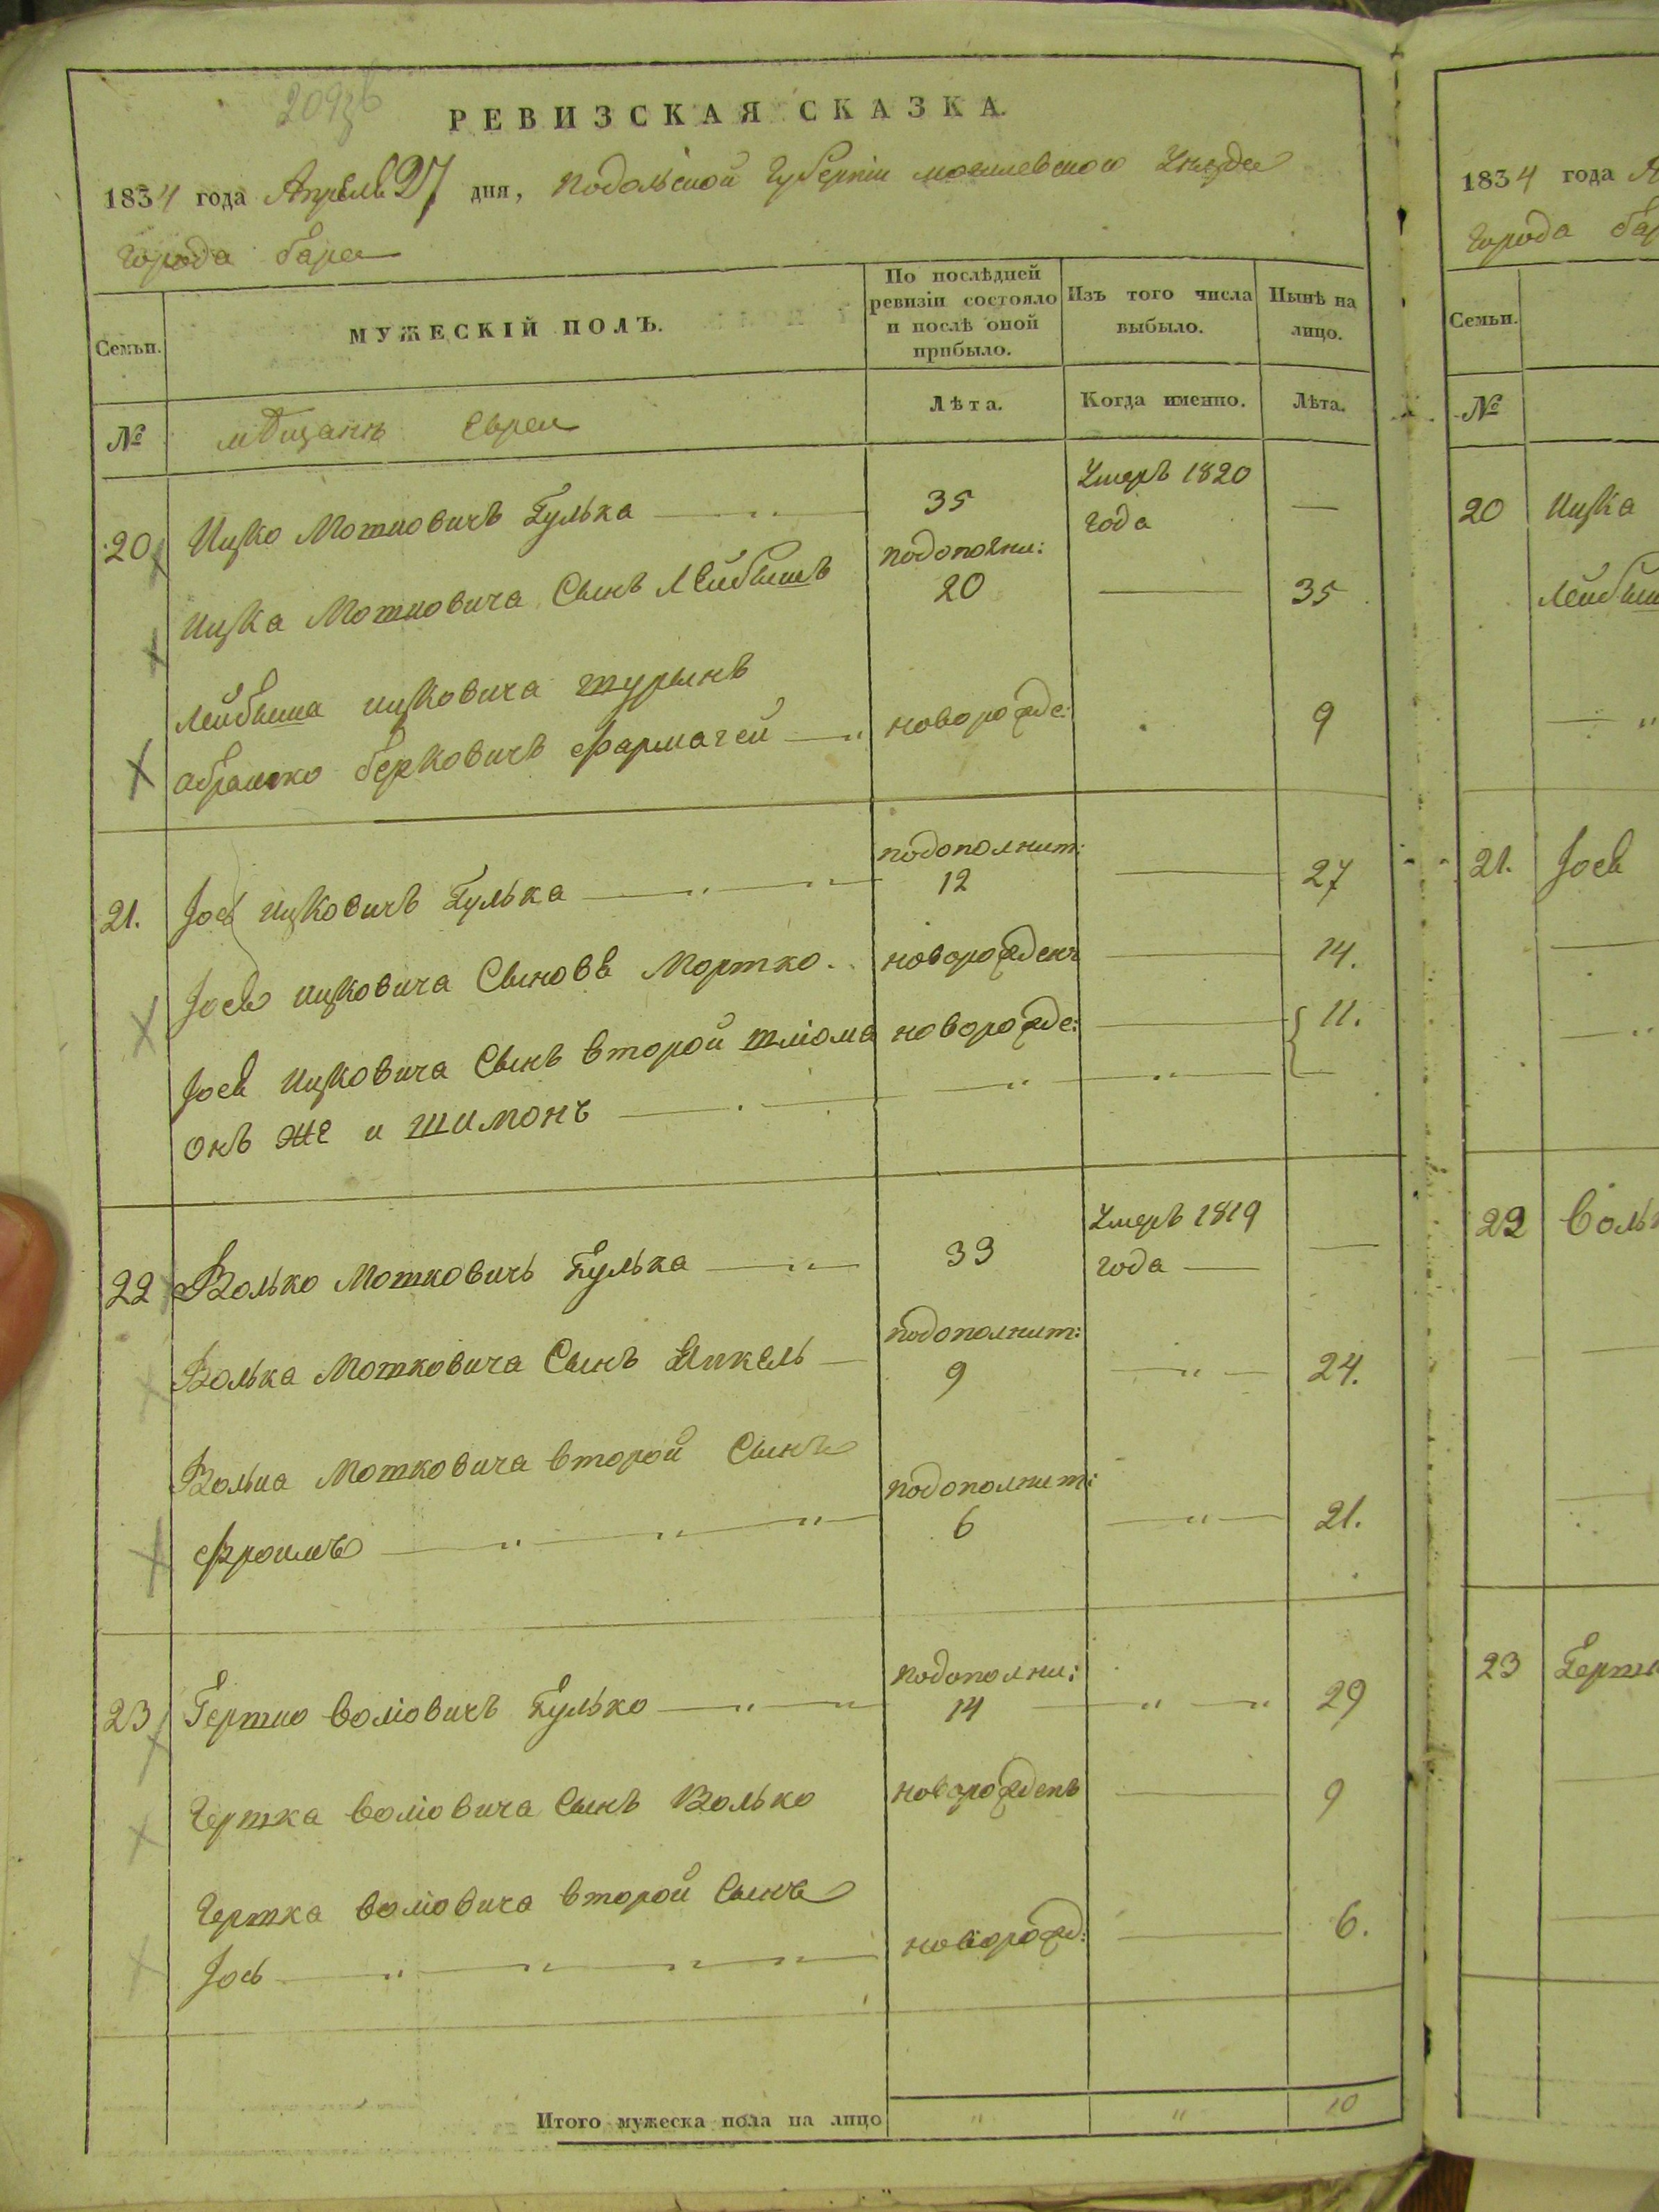 РЕВИЗСКАЯ СКАЗКА
1834 года Апреля 27 дня, Подольской Губернии могилевского Уезда
Города Бара
Семьи.
МУЖЕСКІЙ ПОЛЪ.
По послѣдней ревизіи состояло и послѣ оной прибыло.
Изъ того числа выбыло.
Нынѣ на лицо.
№
мѣщанъ Евреи
Лѣта.
Когда именно.
Лѣта.
20 Ицко Мотковичъ Гулька 35 Умеръ 1820 года —
Ицка Мотковича Сынъ Лейбышъ подополни: 20 — 35
Лейбыша ицковича шурынъ
абрамко берковичъ фармагей новорожде: 9
21. Іось ицковичъ Гулька подополнит: 12 — 27
Іося ицковича Сыновв Мортко новорожденъ — 14.
Іося Ицковича Сынъ второй шліома новорожде: — 11.
онъ же и шимонъ
22 Волько Мотковичъ Гулька 33 Умеръ 1819 года —
Волька Мотковича Сынъ Янкель подополнит: 9 — 24.
Волька Мотковича второй Сынъ
Фроимъ подополнит: 6 — 21.
23 Гертко воліовичъ Гулько подополни: 14 — 29
Гертка воліовича Сынъ Волько новорожденъ — 9
Гертка воліовича второй Сынъ
Іось новорожд: — 6.
Итого мужеска пола на лицо " " 10
1834 года
Города
Семьи.
№
20 Ицка
21. Іося
22
23